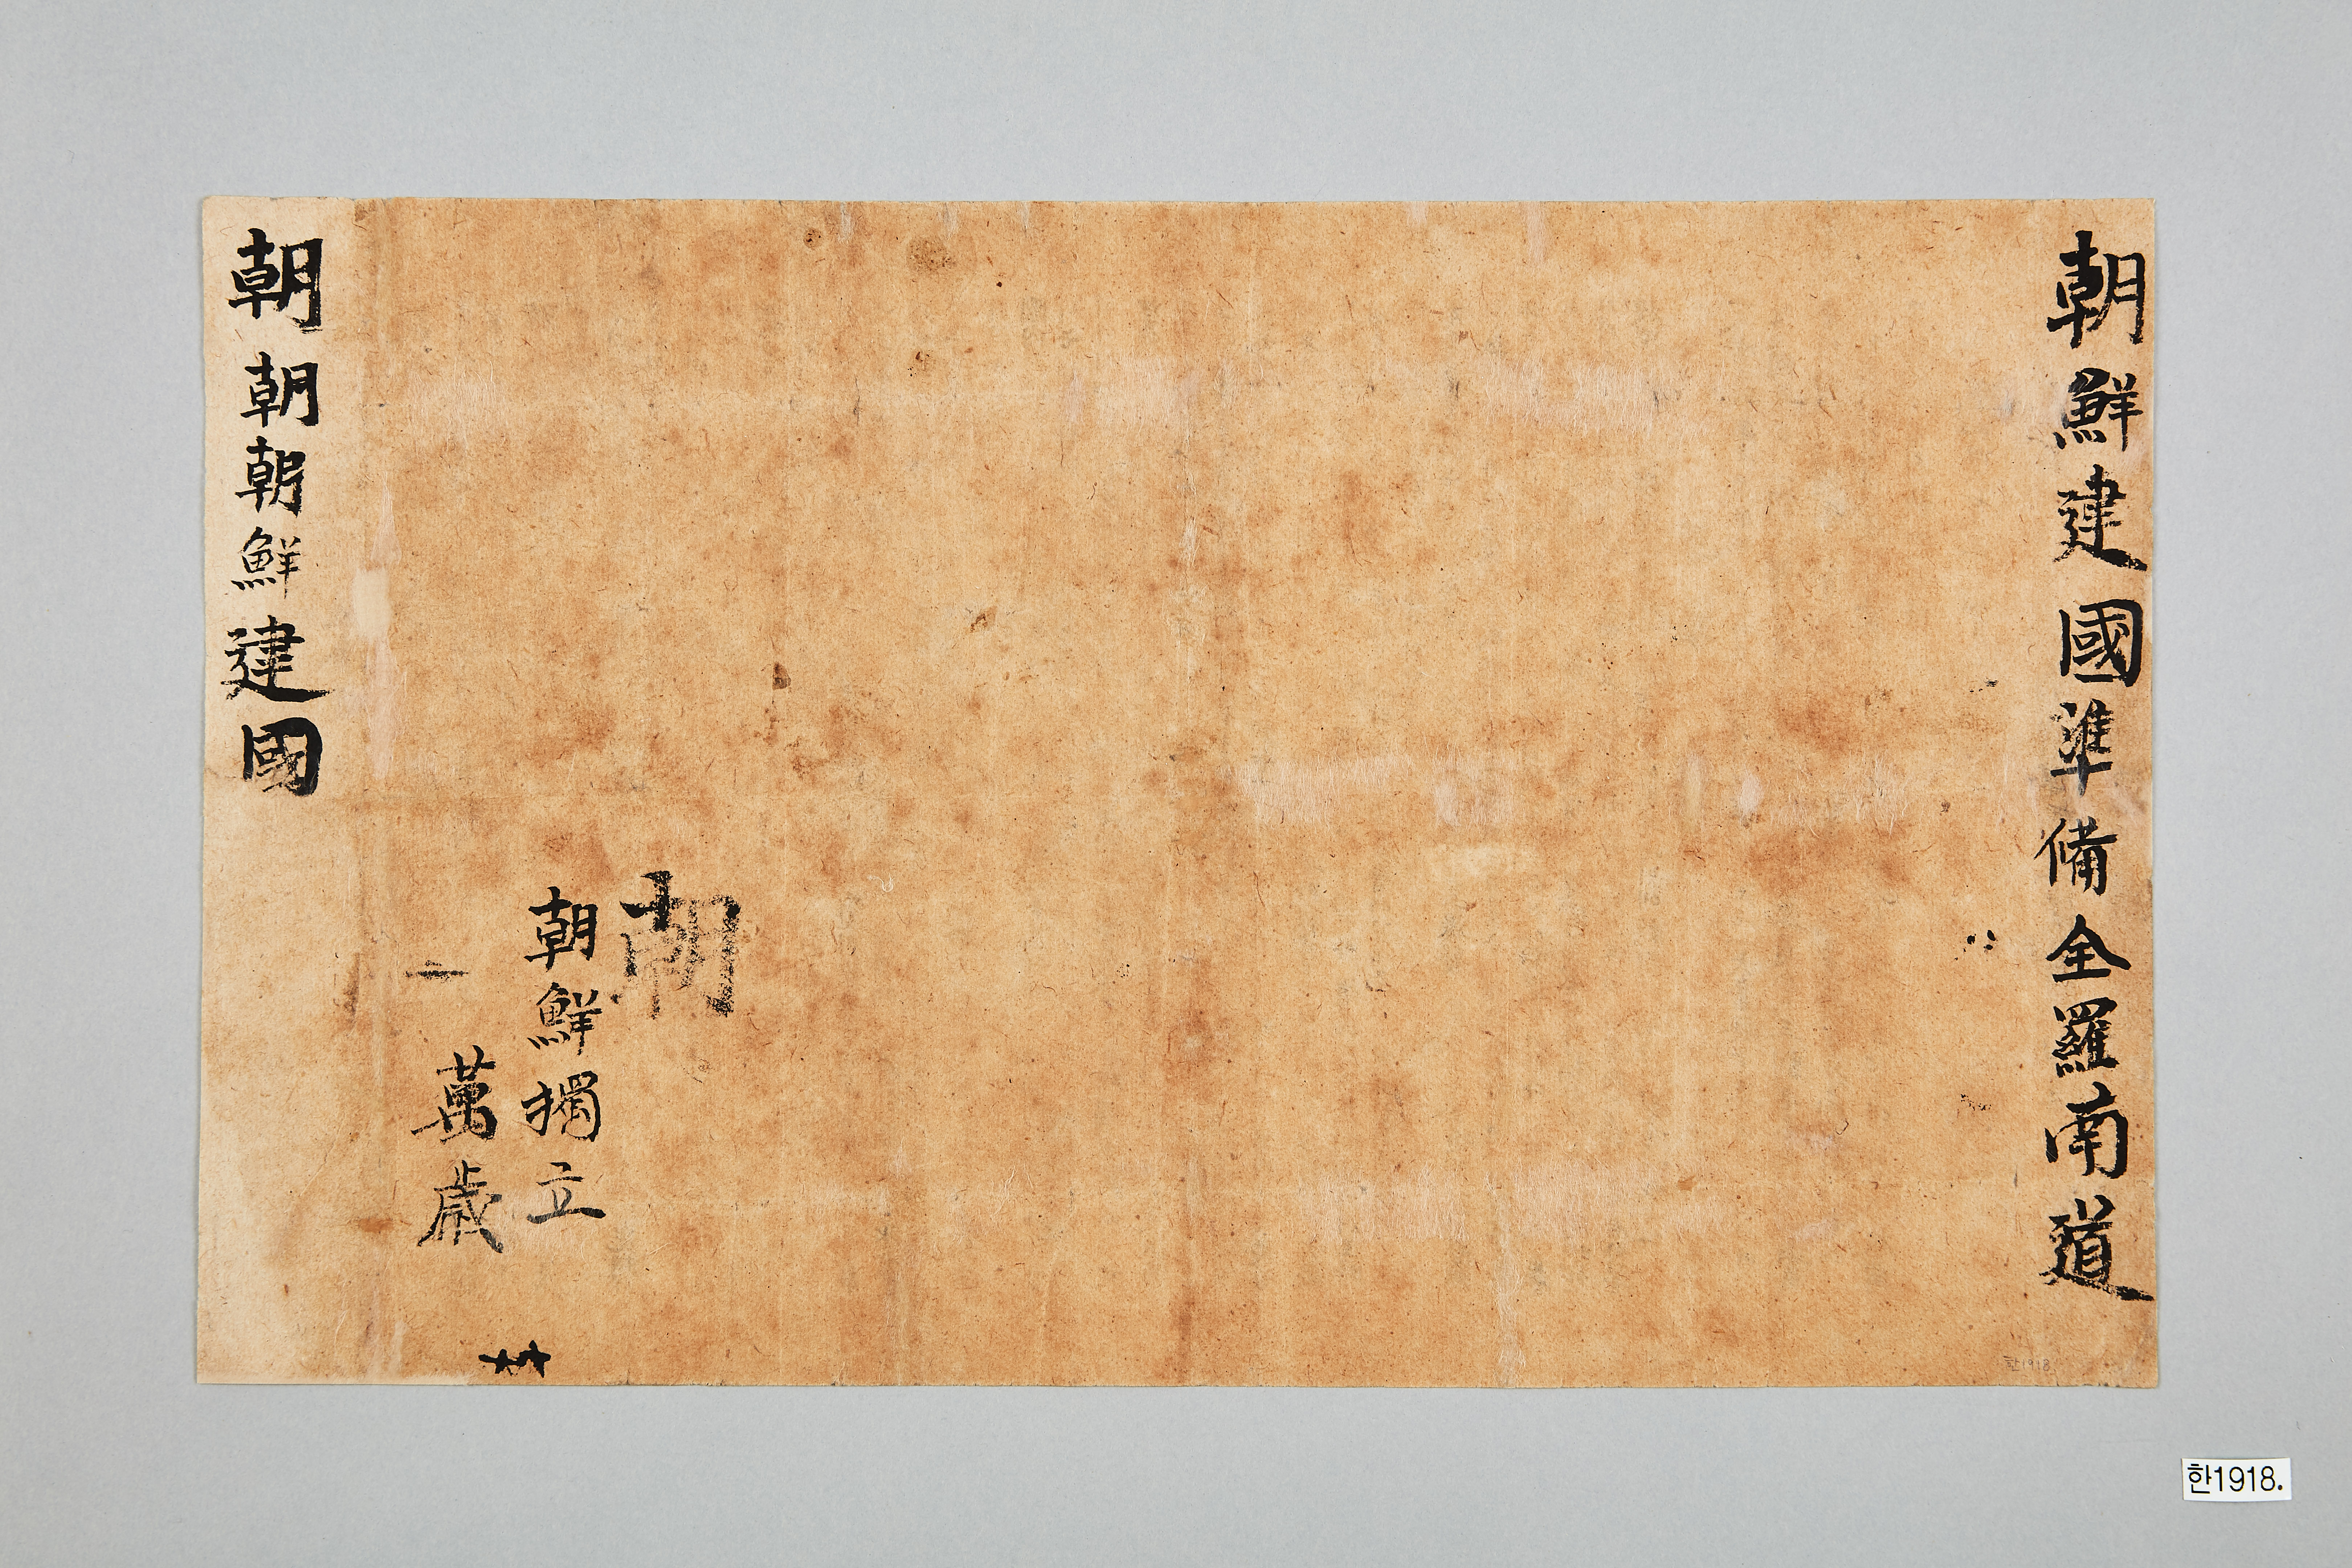 朝鮮建國準備全羅南道
朝
朝鮮獨立
萬歲
朝朝朝鮮建國
한1918
한1918.